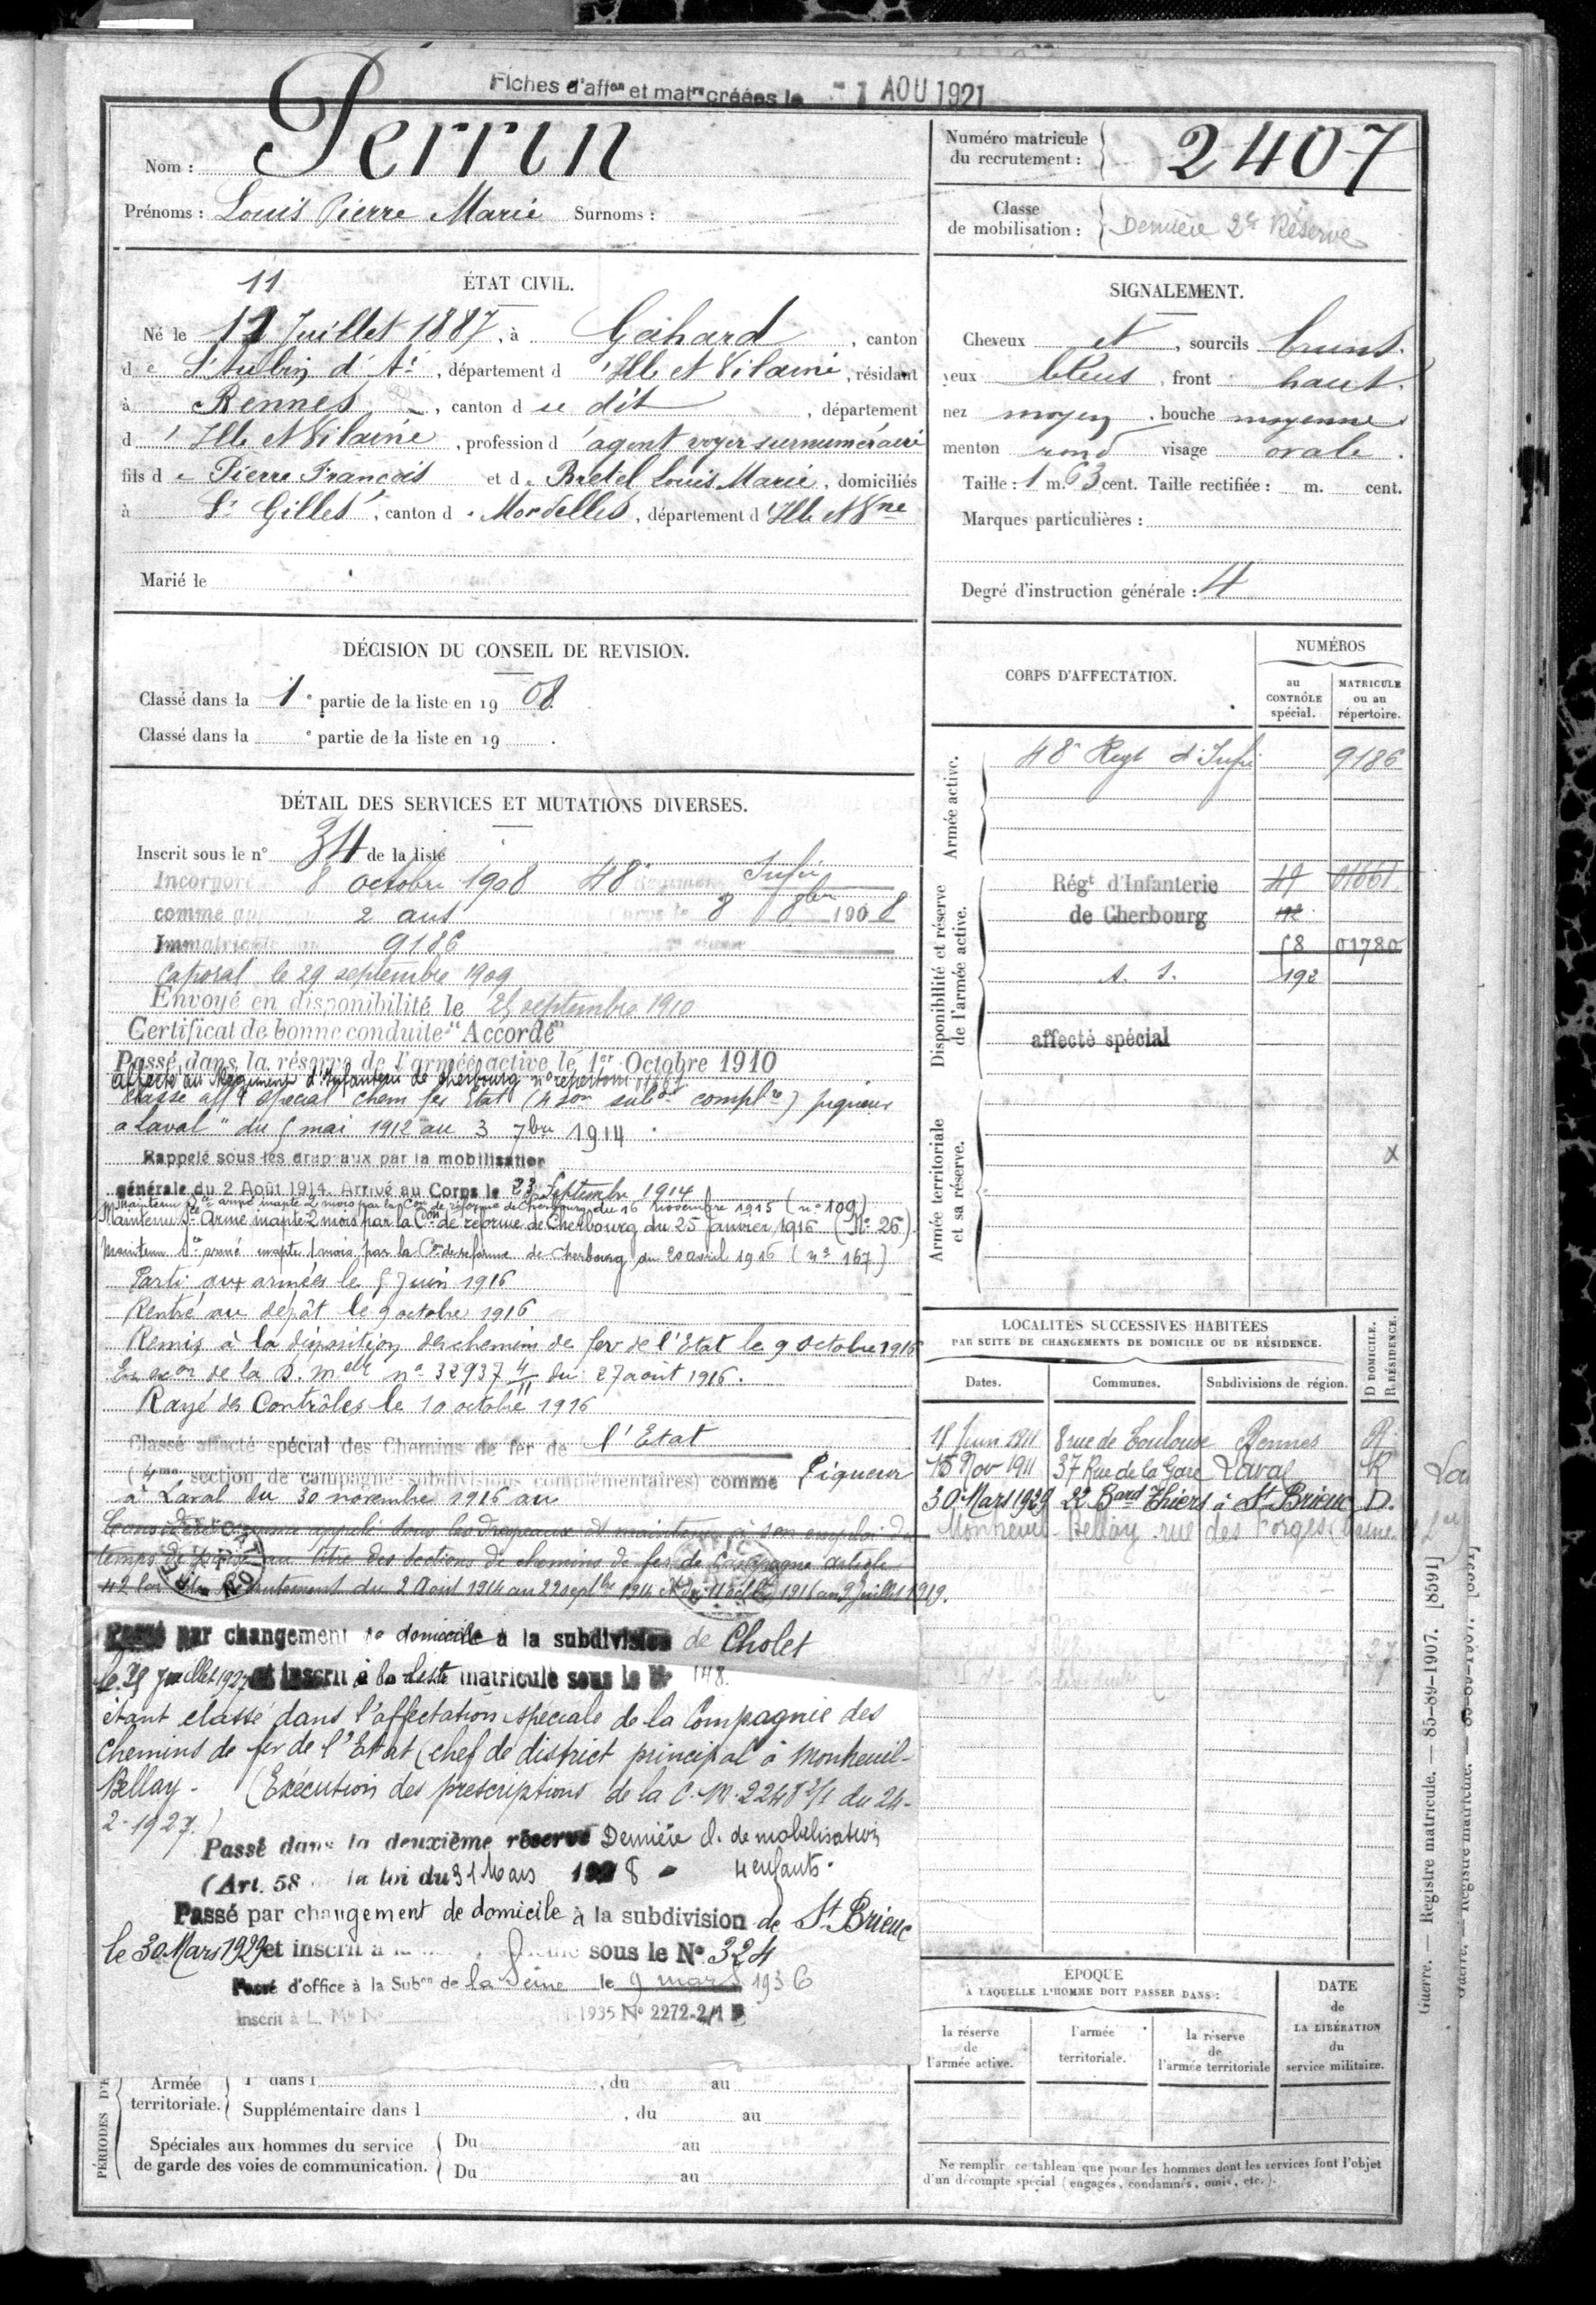 Fiches d'affon et matre créées le 1 AOU 1921
Nom : Perrin
Prénoms : Louis Pierre Marie Surnoms :
Numéro matricule
du recrutement : 2407
Classe
de mobilisation : Dernière 2e Réserve
ÉTAT CIVIL.
11
Né le 12 Juillet 1887, à Gahard, canton
de St Aubin d'A., département d'Ille et Vilaine, résidant
à Rennes, canton du dit, département
d'Ille et Vilaine, profession d'agent voyer surnuméraire
fils de Pierre François et de Bretel Louis Marie, domiciliés
à St Gilles, canton de Mordelles, département d'Ille et Vne
Marié le
SIGNALEMENT.
Cheveux et, sourcils bruns.
yeux bleus, front haut.
nez moyen, bouche moyenne
menton rond visage ovale.
Taille : 1 m. 63 cent. Taille rectifiée : m. cent.
Marques particulières :
Degré d'instruction générale : 4
DÉCISION DU CONSEIL DE REVISION.
Classé dans la 1e partie de la liste en 1908.
Classé dans la e partie de la liste en 19 .
DÉTAIL DES SERVICES ET MUTATIONS DIVERSES.
Inscrit sous le n° 34 de la liste
Incorporé 8 octobre 1908 48e Régiment Infie
comme 2 ans Corps le 8 8bre 1908
Immatriculé 9186
Caporal le 29 septembre 1909
Envoyé en disponibilité le 25 septembre 1910
Certificat de bonne conduite "Accordé"
Passé dans la réserve de l'armée active le 1er Octobre 1910
affecté au Régiment d'Infanterie de Cherbourg n° répertoire 01661
Classé affté spécial chem fer Etat (4 son subdon complre) piqueur
à Laval " du 5 mai 1912 au 3 7bre 1914.
Rappelé sous les drapeaux par la mobilisation
générale du 2 Août 1914. Arrivé au Corps le 23 Septembre 1914
Maintenu Sce armé inapte 2 mois par la Con de réforme de Cherbourg du 16 novembre 1915 (n° 109)
Maintenu Sce Armé inapte 2 mois par la Con de réforme de Cherbourg du 25 janvier 1916 (N° 26)
Maintenu Sce armé inapte 1 mois par la Con de réforme de Cherbourg du 20 avril 1916 (n° 167)
Parti aux armées le 5 Juin 1916
Rentré au dépôt le 9 octobre 1916
Remis à la disposition des chemins de fer de l'Etat le 9 octobre 1916
En exon de la D. melle n° 32937 4/11 du 27 août 1916.
Rayé des Contrôles le 10 octobre 1916
Classé affecté spécial des Chemins de fer de l'Etat
(4me section de campagne subdivisions complémentaires) comme Piqueur
à Laval du 30 novembre 1916 au
Considéré comme appelé sous les drapeaux et maintenu à son emploi du
temps de paix au titre des sections de chemins de fer de Campagne article
42 loi du Recrutement du 2 Août 1914 au 22 septbre 1914 et du 11 octbre 1916 au 9 juillet 1919.
Passé par changement de domicile à la subdivision de Cholet
le 29 juillet 1927 et inscrit à la liste matricule sous le N° 148.
étant classé dans l'affectation spéciale de la Compagnie des
Chemins de fer de l'Etat (chef de district principal à Montreuil-
Bellay - (Exécution des prescriptions de la C.M. 2248 2/1 du 24-
2-1927.)
Passé dans la deuxième réserve Dernière cl. de mobilisation
(Art. 58 de la loi du 31 Mars 1928 - 4 enfants.
Passé par changement de domicile à la subdivision de St Brieuc
le 30 Mars 1929 et inscrit à sous le N° 324
Passé d'office à la Subon de la Seine le 9 mars 1936
Inscrit à L. Mle N° 1935 N° 2272-2/1
PÉRIODES D'E
Armée
territoriale.
1 dans l , du au
Supplémentaire dans l , du au
Spéciales aux hommes du service
de garde des voies de communication.
Du au
Du au
CORPS D'AFFECTATION.
NUMÉROS
au
CONTRÔLE
spécial.
MATRICULE
ou au
répertoire.
Armée active.
48e Regt d'Infie 9186
Disponibilité et réserve
de l'armée active.
Régt d'Infanterie 49 01661
de Cherbourg 112
58 01780
A. S. 192
affecté spécial
Armée territoriale
et sa réserve.
X
LOCALITÉS SUCCESSIVES HABITÉES
PAR SUITE DE CHANGEMENTS DE DOMICILE OU DE RÉSIDENCE.
D DOMICILE.
R RÉSIDENCE.
Dates. Communes. Subdivisions de région.
18 Juin 1911 8 rue de Toulouse Rennes R
15 Nov 1911 37 Rue de la Gare Laval R
30 Mars 1929 22 Bard Thiers à St Brieuc D.
Montreuil-Bellay rue des Forges
ÉPOQUE
À LAQUELLE L'HOMME DOIT PASSER DANS :
la réserve
de
l'armée active.
l'armée
territoriale.
la réserve
de
l'armée territoriale
DATE
de
LA LIBÉRATION
du
service militaire.
Ne remplir ce tableau que pour les hommes dont les services font l'objet
d'un décompte spécial (engagés, condamnés, omis, etc.).
Guerre. — Registre matricule. — 85-89-1907. [8591]